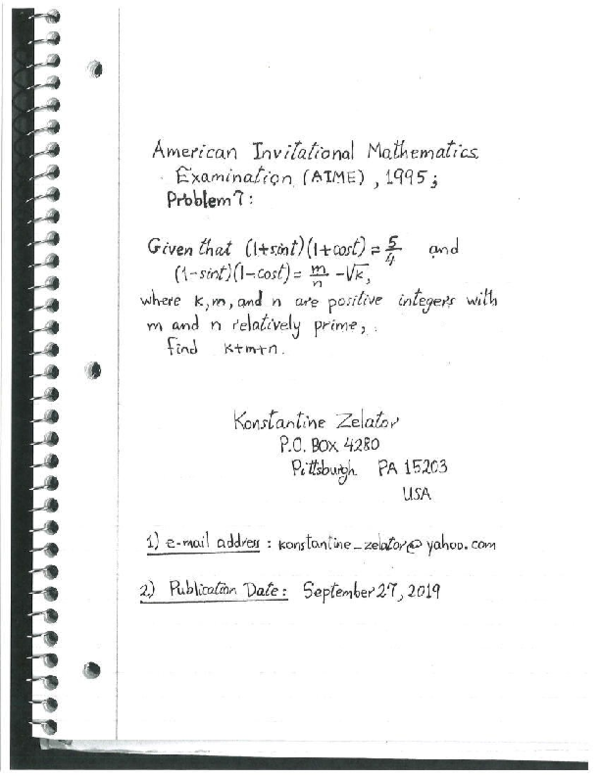 American Invitational Mathematics
Examination (AIME), 1995;
Problem 7:
Given that (1+sint)(1+cost) = 5/4 and
(1-sint)(1-cost) = m/n - √k,
where k, m, and n are positive integers with
m and n relatively prime,
find k+m+n.
Konstantine Zelator
P.O. BOX 4280
Pittsburgh PA 15203
USA
1) e-mail address : konstantine_zelator@yahoo.com
2) Publication Date: September 27, 2019